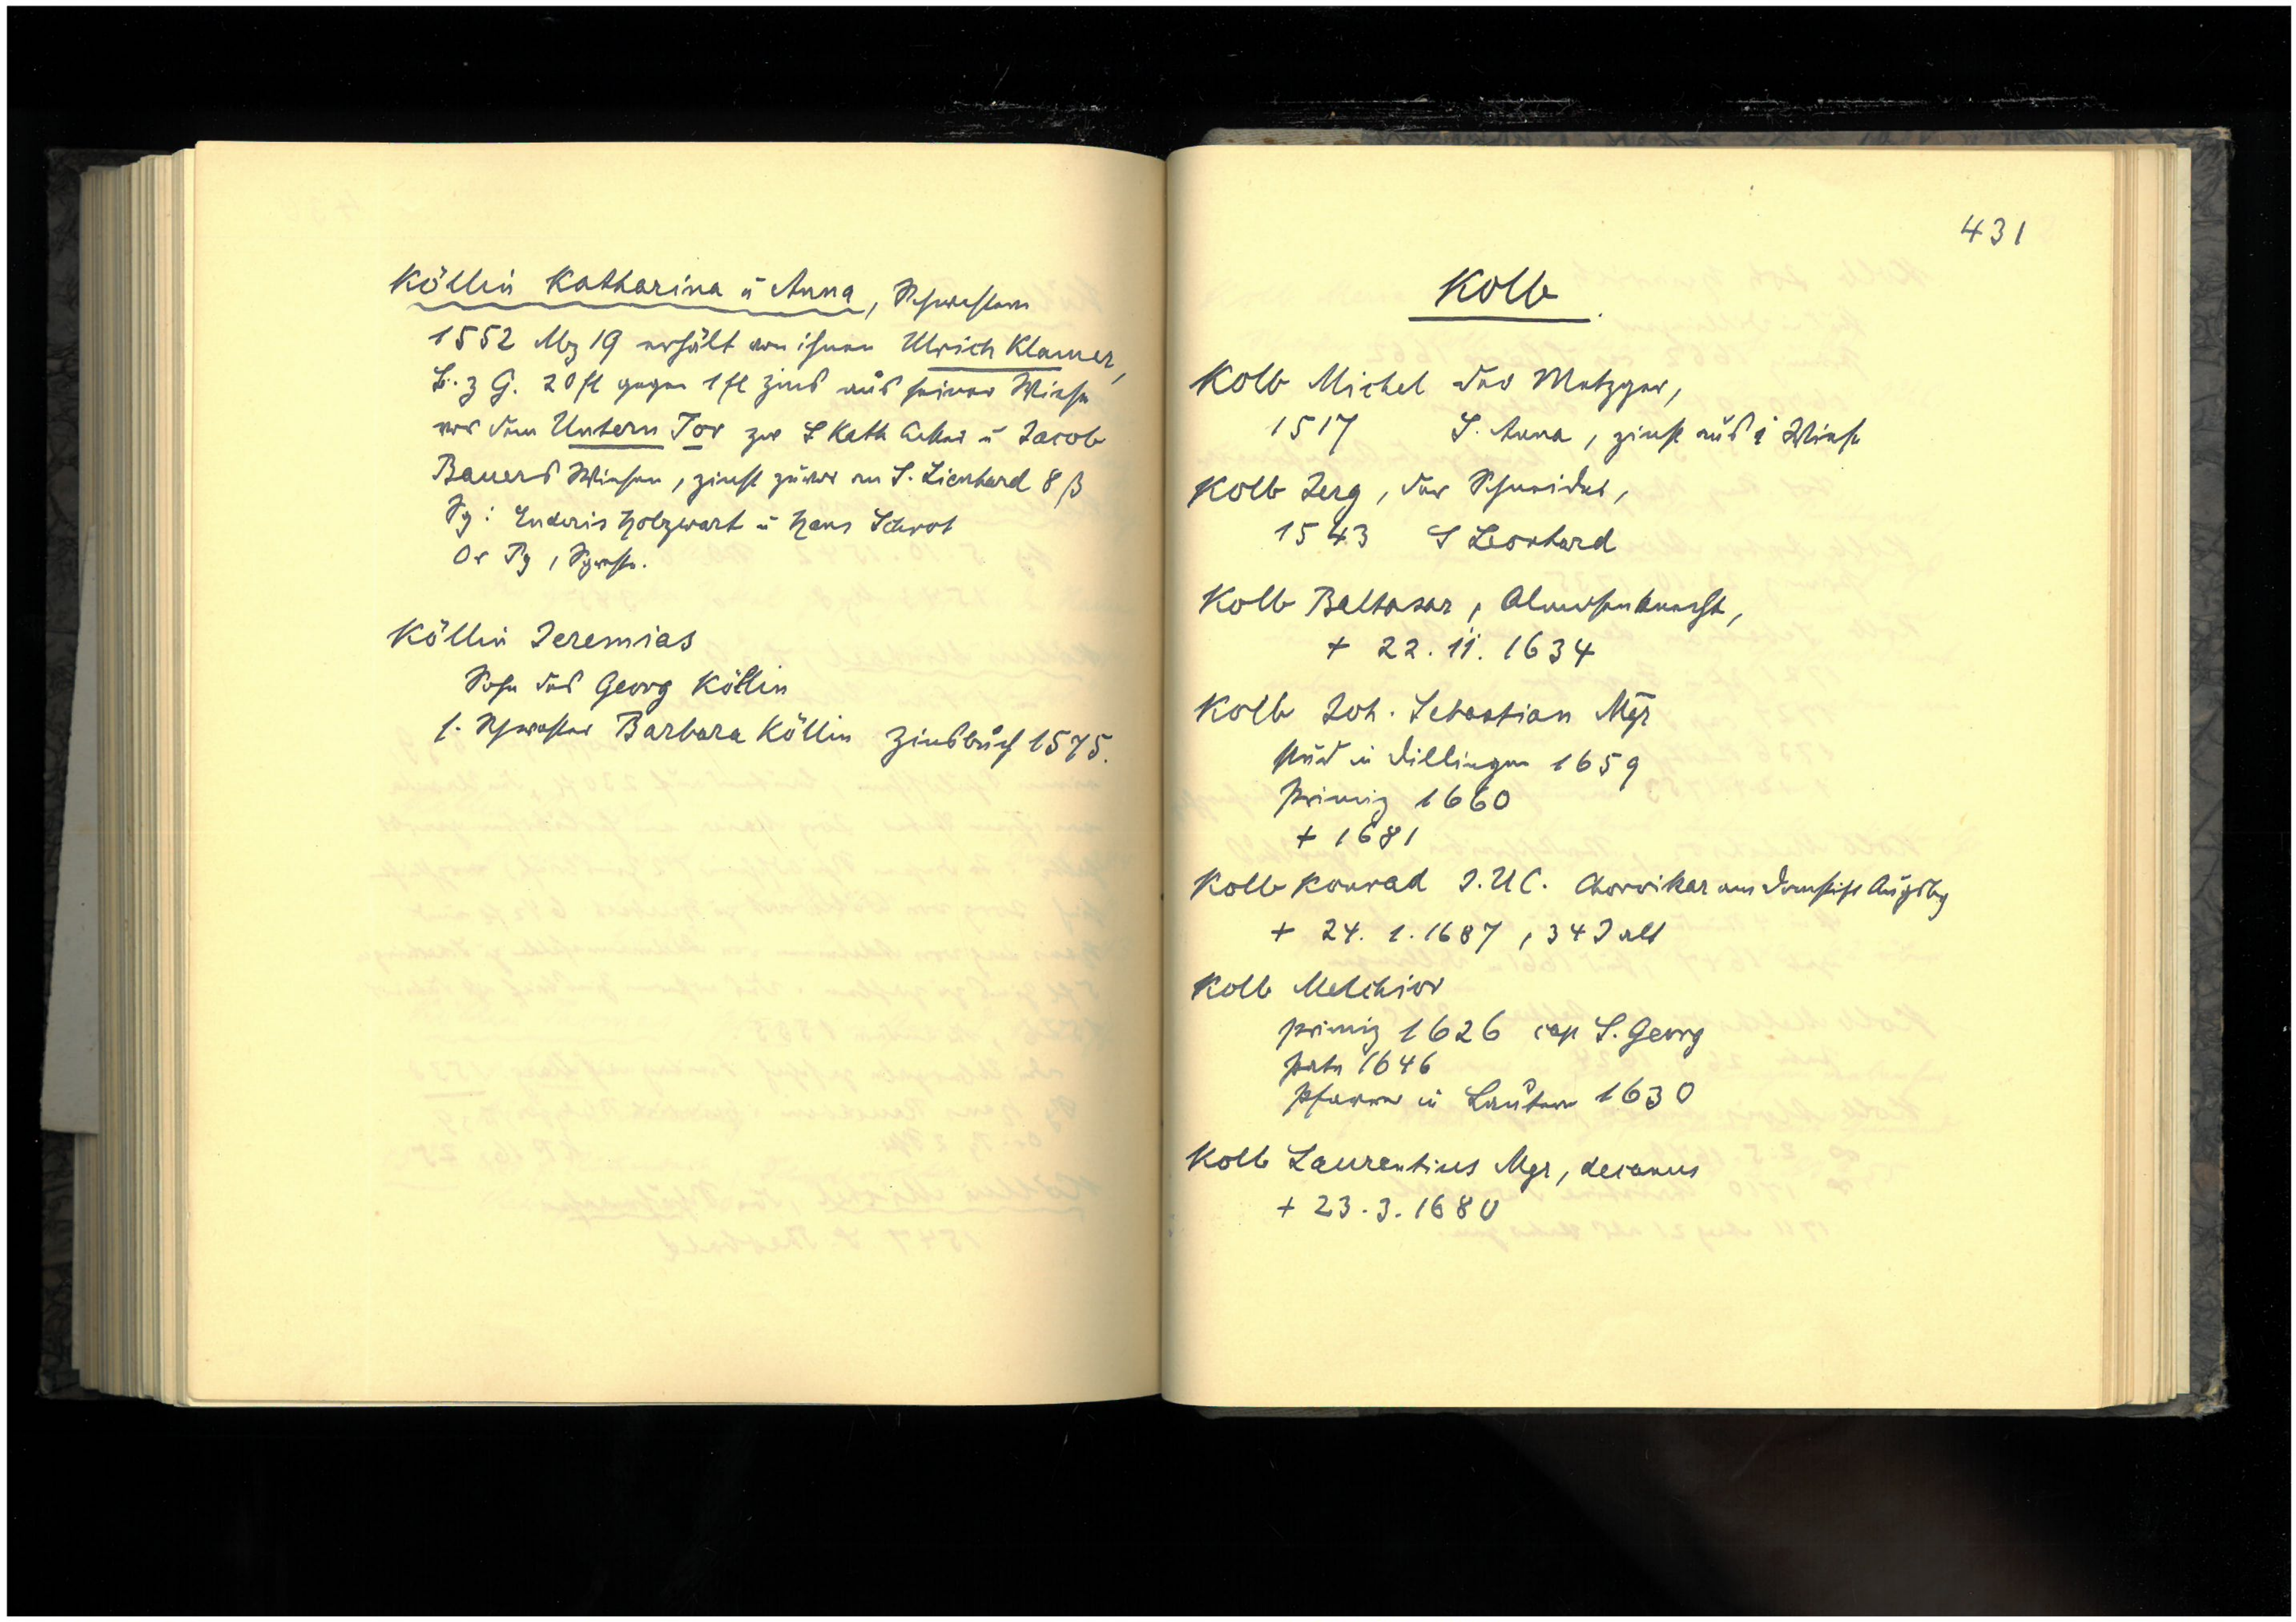 Köllin Katharina u Anna, Schwestern
1552 Mz 19 erhält von ihnen Ulrich Klamer,
B. z G. 20 fl gegen 1 fl Zins aus seiner Wiese
vor dem Untern Tor zw S Kath Acker u Jacob
Bauers Wiesen, zinst zuvor an S. Lienhard 8 ß
Sg: Enderis Holzwart u Hans Schrot
Or Pg, Sg
Köllin Jeremias
Sohn des Georg Köllin
s. Schwester Barbara Köllin Zinsbuch 1575.
431
Kolb
Kolb Michel der Metzger,
1517 S. Anna, zinst aus 1 Wiese
Kolb Jerg, der Schneider,
1543 S Leonhard
Kolb Baltasar, Almosenknecht,
+ 22. 11. 1634
Kolb Joh. Sebastian Mgr
stud in Dillingen 1659
Primiz 1660
+ 1681
Kolb Konrad J.U.C. Chorvikar am Domstift Augsbg
+ 24. 1. 1687, 34 J alt
Kolb Melchior
primiz 1626 cap S. Georg
1646
Pfarrer in Lautern 1630
Kolb Laurentius Mgr, decanus
+ 23. 3. 1680